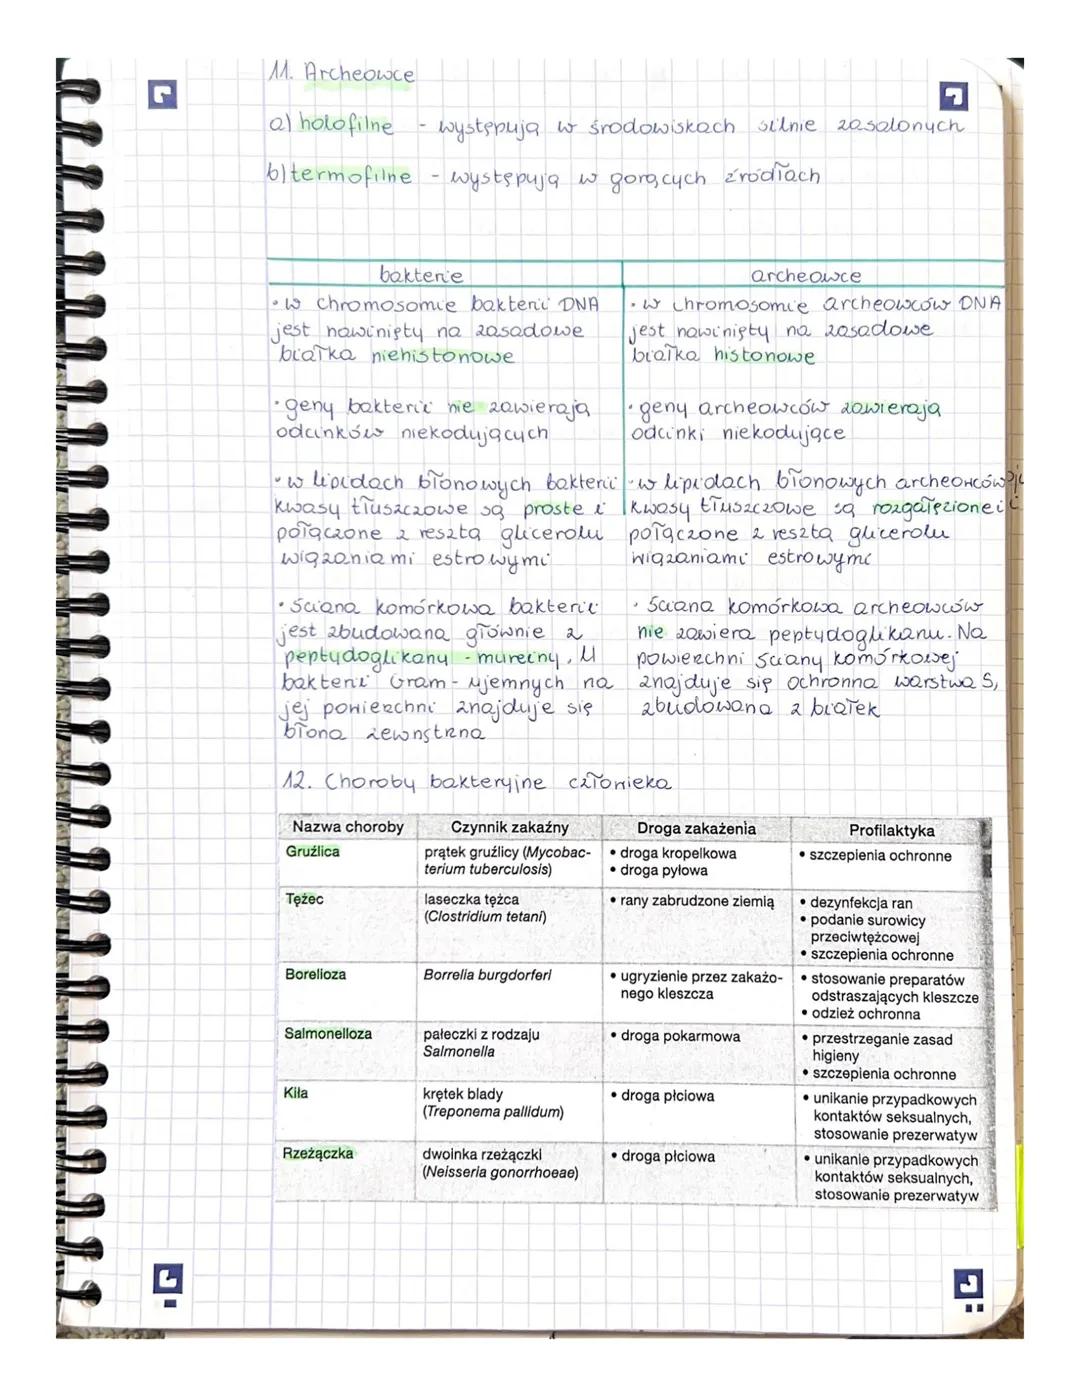 11. Archeowce
a) halofilne - występują w środowiskach silnie zasolonych
b) termofilne - występują w gorących źródłach
bakterie
archeowce
• w chromosomie bakterii DNA
jest nawinięty na zasadowe
białka niehistonowe
• w chromosomie archeowców DNA
jest nawinięty na zasadowe
białka histonowe
• geny bakterii nie zawierają
odcinków niekodujących
• geny archeowców zawierają
odcinki niekodujące
• w lipidach błonowych bakterii
kwasy tłuszczowe są proste i
połączone z resztą glicerolu
wiązaniami estrowymi
• w lipidach błonowych archeowców
kwasy tłuszczowe są rozgałęzione i
połączone z resztą glicerolu
wiązaniami estrowymi
• Ściana komórkowa bakterii
jest zbudowana głównie z
peptydoglikanu - mureiny. U
bakterii Gram-ujemnych na
jej powierzchni znajduje się
błona zewnętrzna
• Ściana komórkowa archeowców
nie zawiera peptydoglikanu. Na
powierzchni ściany komórkowej
znajduje się ochronna warstwa S,
zbudowana z białek
12. Choroby bakteryjne człowieka
Nazwa choroby
Czynnik zakaźny
Droga zakażenia
Profilaktyka
Gruźlica
prątek gruźlicy (Mycobac-
terium tuberculosis)
• droga kropelkowa
• droga pyłowa
• szczepienia ochronne
Tężec
laseczka tężca
(Clostridium tetani)
• rany zabrudzone ziemią
• dezynfekcja ran
• podanie surowicy
przeciwtężcowej
• szczepienia ochronne
Borelioza
Borrelia burgdorferi
• ugryzienie przez zakażo-
nego kleszcza
• stosowanie preparatów
odstraszających kleszcze
• odzież ochronna
Salmonelloza
pałeczki z rodzaju
Salmonella
• droga pokarmowa
• przestrzeganie zasad
higieny
• szczepienia ochronne
Kiła
krętek blady
(Treponema pallidum)
• droga płciowa
• unikanie przypadkowych
kontaktów seksualnych,
stosowanie prezerwatyw
Rzeżączka
dwoinka rzeżączki
(Neisseria gonorrhoeae)
• droga płciowa
• unikanie przypadkowych
kontaktów seksualnych,
stosowanie prezerwatyw